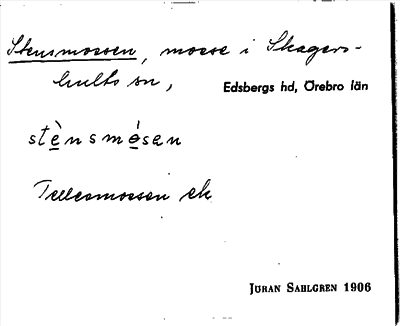 Stensmossen, mosse i Skagers-
hults sn,
Edsbergs hd, Örebro län
stènsmósen
Tellesmossen ek
JÖRAN SAHLGREN 1906